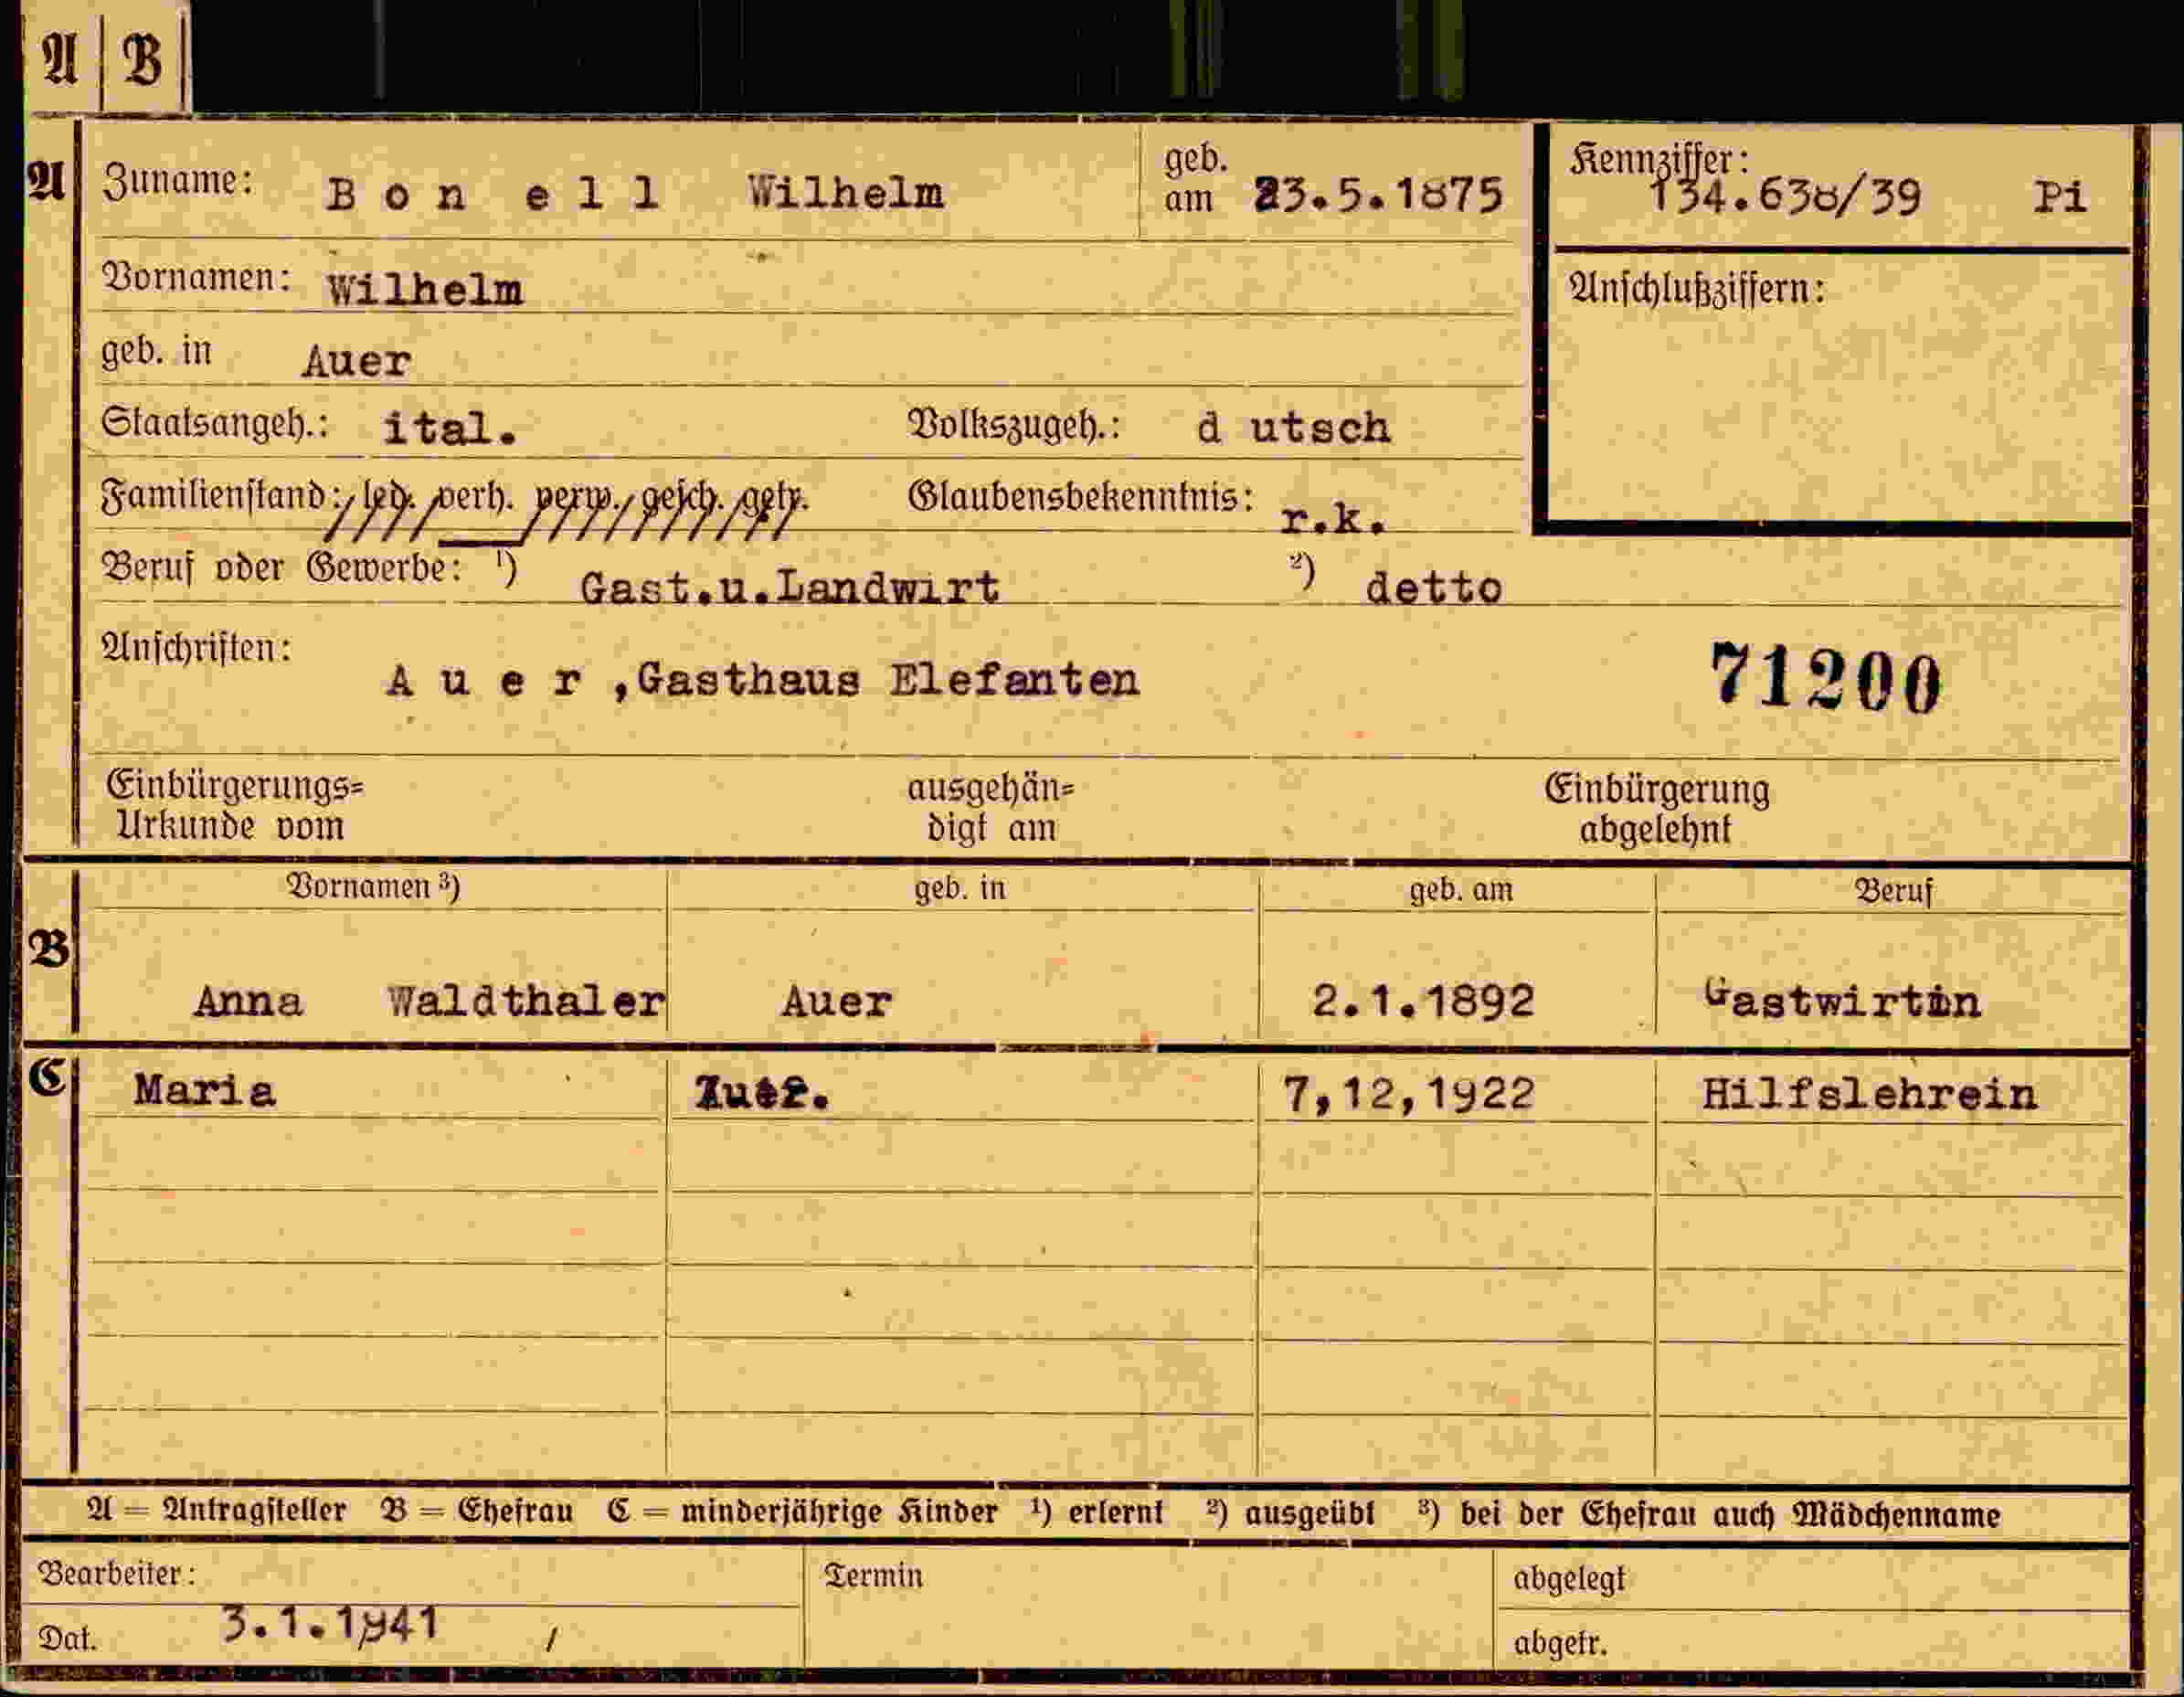 A B
A
Zuname: B o n ell Wilhelm
geb. am 23.5.1875
Kennziffer: 134.638/39 Pi
Vornamen: Wilhelm
Anschlußziffern:
geb. in Auer
Staatsangeh.: ital. Volkszugeh.: d utsch
Familienstand: led. verh. verw. gesch. getr. Glaubensbekenntnis: r.k.
Beruf oder Gewerbe: ¹) Gast.u.Landwirt ²) detto
Anschriften: A u e r ,Gasthaus Elefanten
71200
Einbürgerungs= Urkunde vom
ausgehän= digt am
Einbürgerung abgelehnt
B
Vornamen ³) geb. in geb. am Beruf
Anna Waldthaler Auer 2.1.1892 Gastwirtin
C
Maria 7,12,1922 Hilfslehrein
A = Antragsteller B = Ehefrau C = minderjährige Kinder ¹) erlernt ²) ausgeübt ³) bei der Ehefrau auch Mädchenname
Bearbeiter: Termin abgelegt
Dat. 3.1.1941 / abgetr.